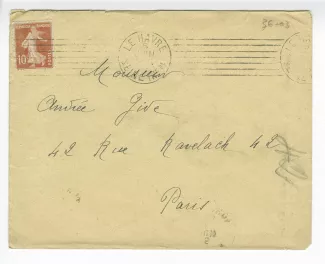 36-03
10
LE HAVRE
Monsieur
André Gide
42 Rue Ravelach 42
Paris